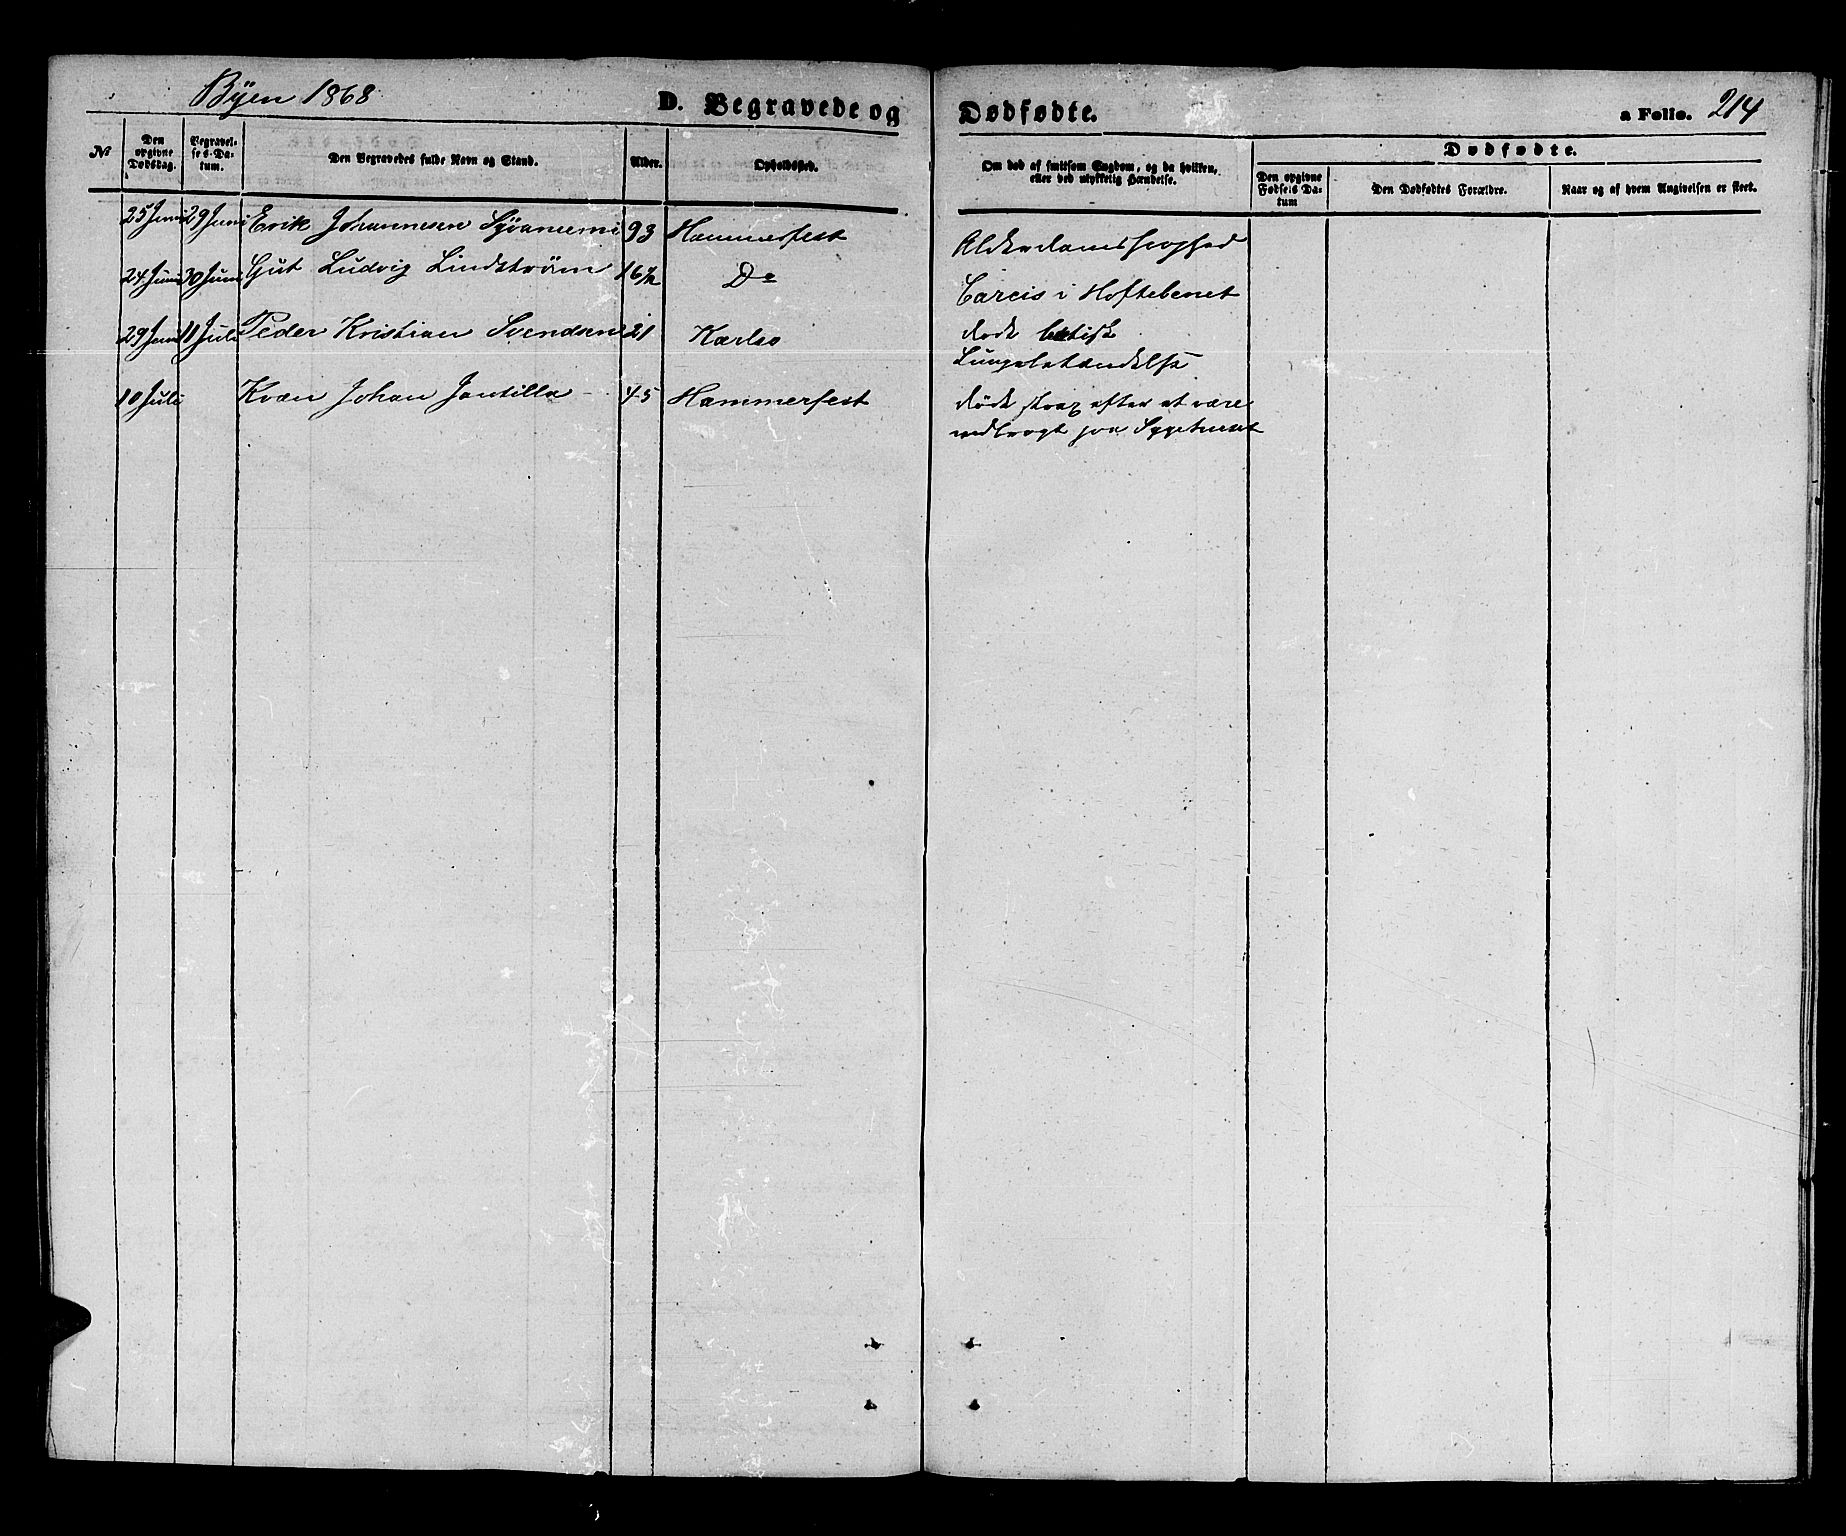 Byen 1868
D. Begravede og Dødfødte.
a Folio. 214
No
Den opgivne Dødsdag.
Begravelses-Datum.
Den Begravedes fulde Navn og Stand.
Alder.
Opholdssted.
Om død af smitsom Sygdom, og da hvilken, eller ved ulykkelig Hændelse.
Dødfødte.
Den opgivne Fødsels Datum
Den Dødfødtes Forældre.
Naar og af hvem Angivelsen er skeet.
25 Juni 29 Juni Erik Johannesen 93 Hammerfest Alderdomssvaghed
24 Juni 30 Juni Gut Ludvig Lindstrøm 16½ Do Careis i Hoftebenet
29 Juni 11 Juli Peder Kristian Svendsen 21 Karlsø død
Lungebetændelse
10 Juli Kvæn Johan Jantilla 45 Hammerfest død strax efter at være
indbragt paa Sygehuset